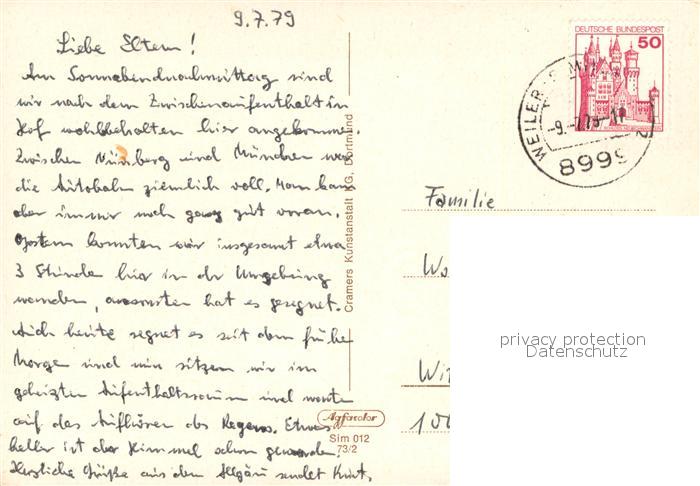 9.7.79
Liebe Eltern!
Am Sonnabendnachmittag sind
wir nach dem Zwischenaufenthalt in
Hof wohlbehalten hier angekommen.
Zwischen Nürnberg und München war
die Autobahn ziemlich voll. Man kam
aber immer noch ganz gut voran.
Gestern konnten wir insgesamt etwa
3 Stunden hier in der Umgebung
wandern, ansonsten hat es geregnet.
Auch heute regnet es seit dem frühen
Morgen und nun sitzen wir im
geheizten Aufenthaltsraum und warten
auf das Aufhören des Regens. Etwas
heller ist der Himmel schon geworden.
Herzliche Grüße aus dem Allgäu sendet Kurt.
Cramers Kunstanstalt KG, Dortmund
Agfacolor
Sim 012
73/2
DEUTSCHE BUNDESPOST
50
WEILER-SIMM
-9.-7.79-17
8999
Familie
Wo
Wi
100
privacy protection
Datenschutz